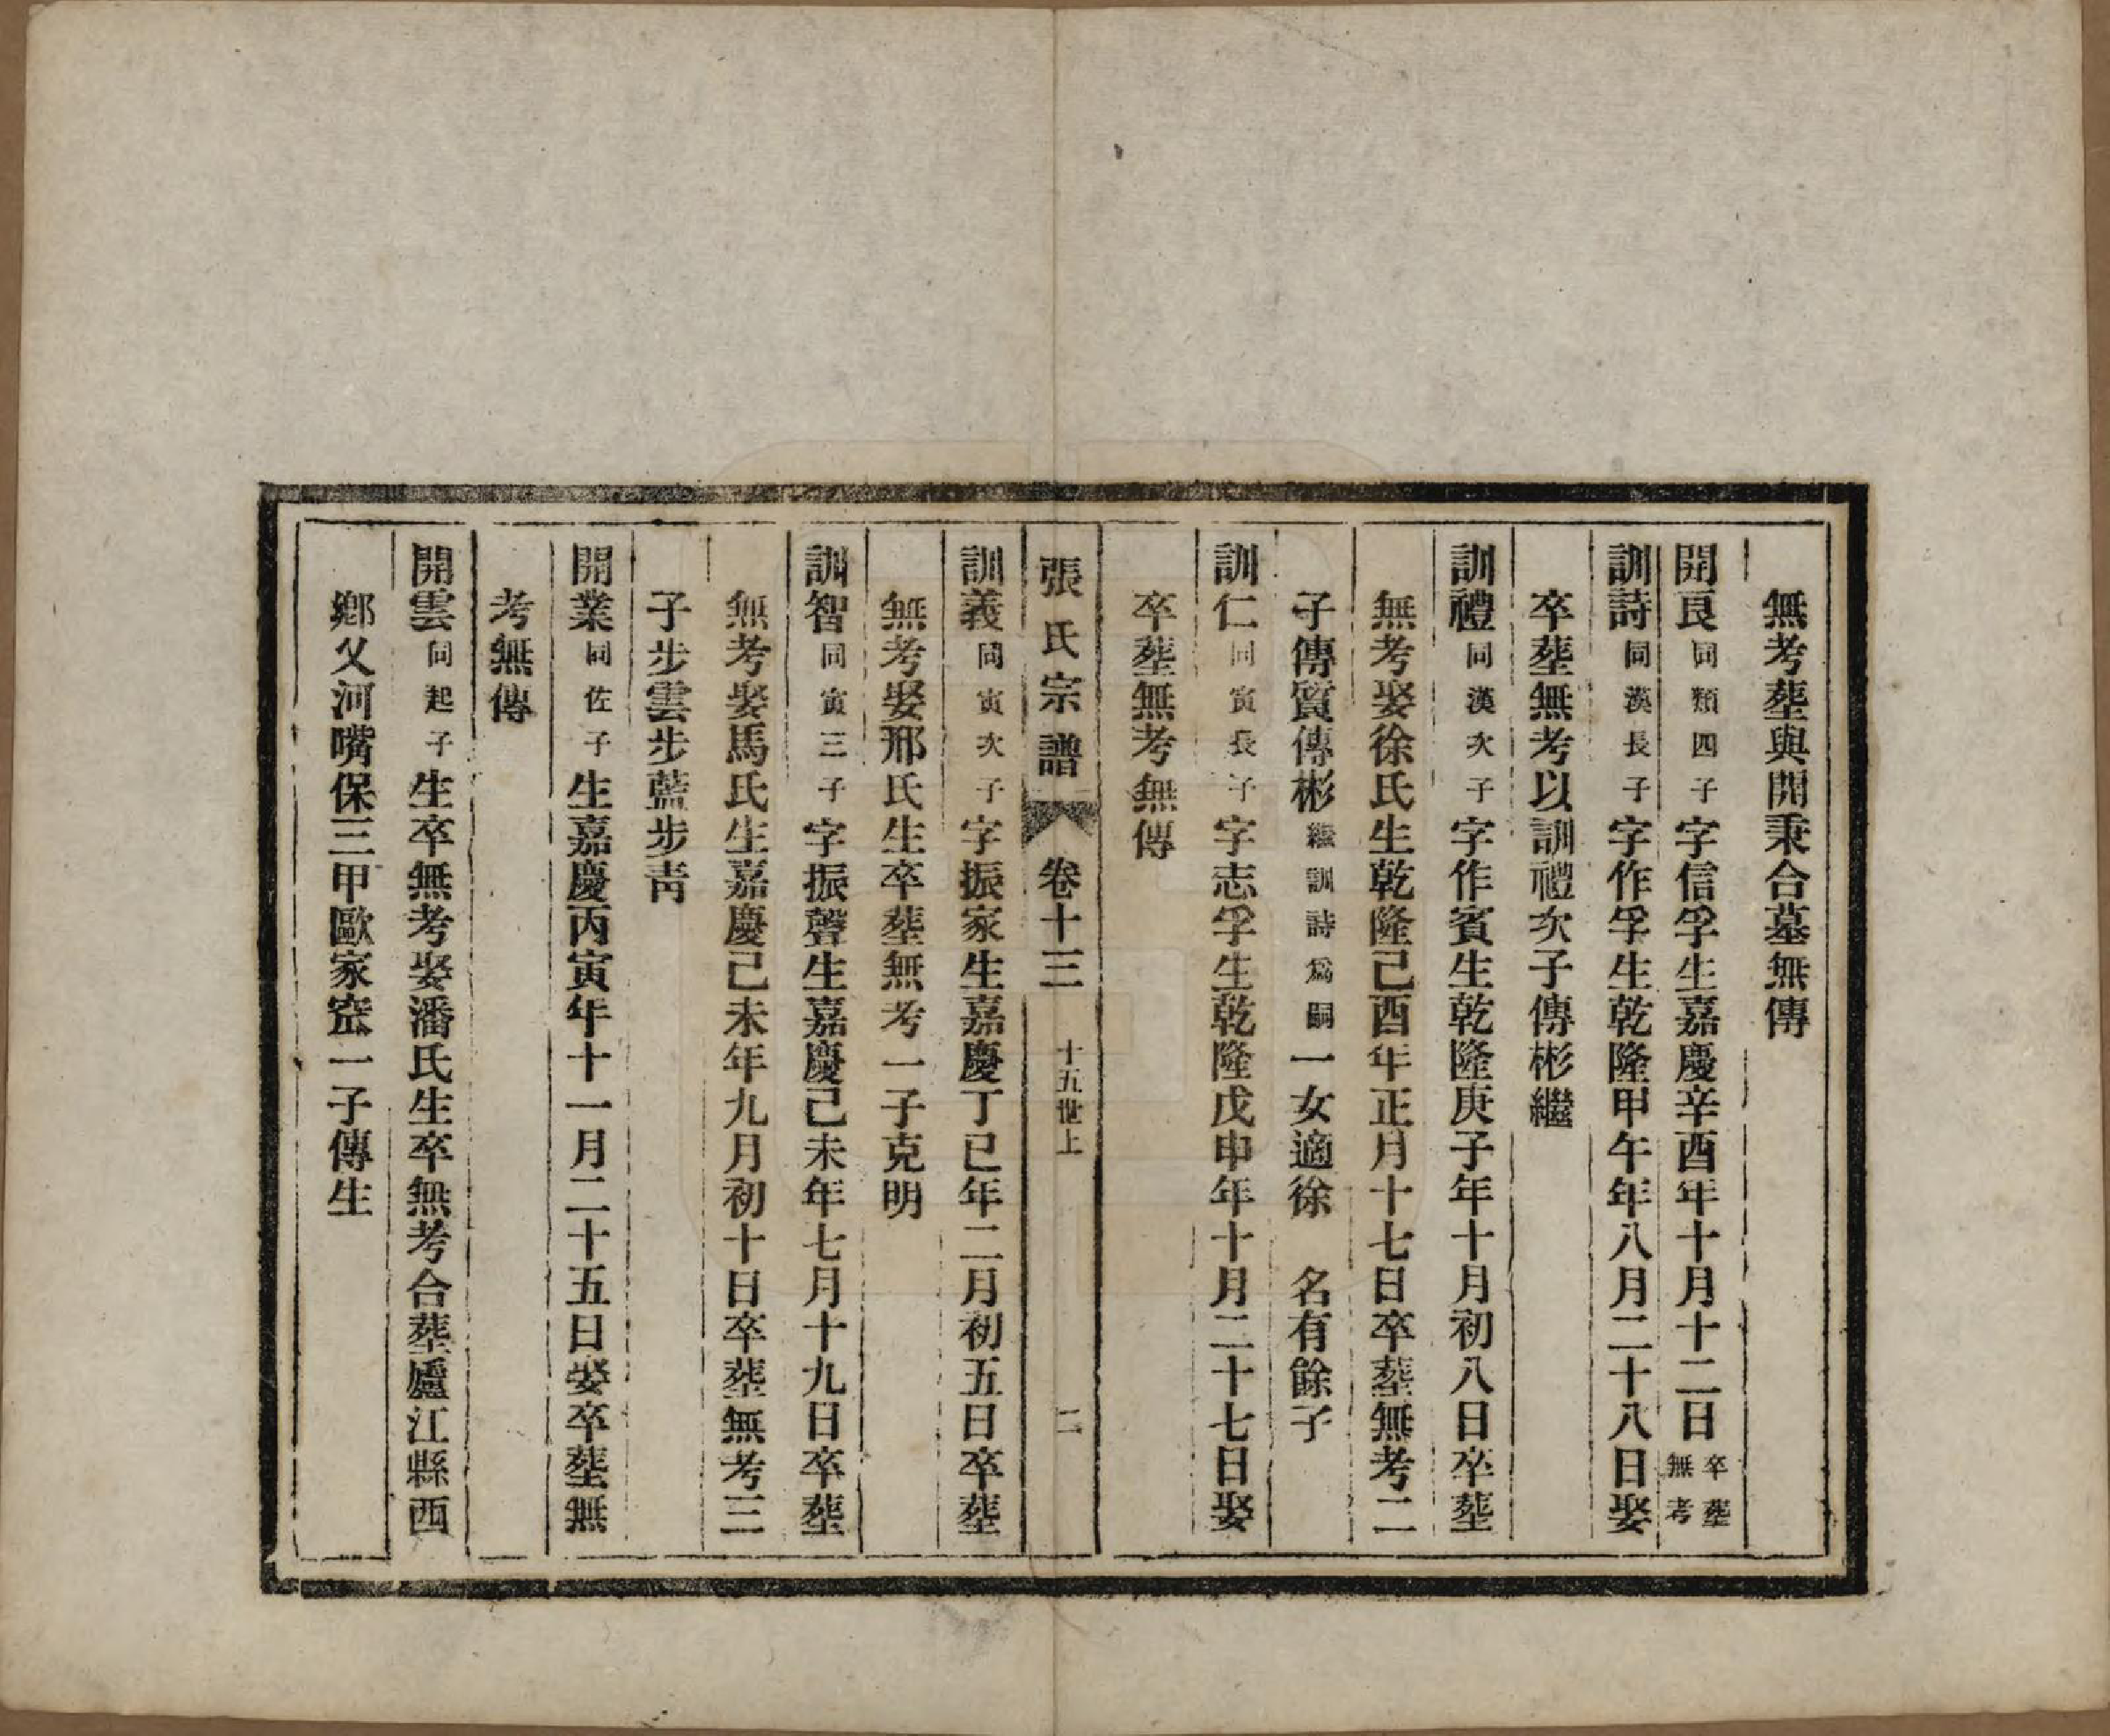 無考葬與開秉合墓無傳
開良同類四子字信孚生嘉慶辛酉年十月十二日卒葬無考
訓詩同漢長子字作孚生乾隆甲午年八月二十八日娶
卒葬無考以訓禮次子傳彬繼
訓禮同漢次子字作賓生乾隆庚子年十月初八日卒葬
無考娶徐氏生乾隆己酉年正月十七日卒葬無考二
子傳質傳彬繼訓詩爲嗣一女適徐　名有餘子
訓仁同寅長子字志孚生乾隆戊申年十月二十七日娶
卒葬無考無傳
張氏宗譜　卷十三　十五世上　二
訓義同寅次子字振家生嘉慶丁巳年二月初五日卒葬
無考娶邢氏生卒葬無考一子克明
訓智同寅三子字振聲生嘉慶己未年七月十九日卒葬
無考娶馬氏生嘉慶己未年九月初十日卒葬無考三
子步雲步藍步青
開業同佐子生嘉慶丙寅年十一月二十五日娶卒葬無
考無傳
開雲同起子生卒無考娶潘氏生卒無考合葬廬江縣西
鄉父河嘴保三甲歐家窊一子傳生